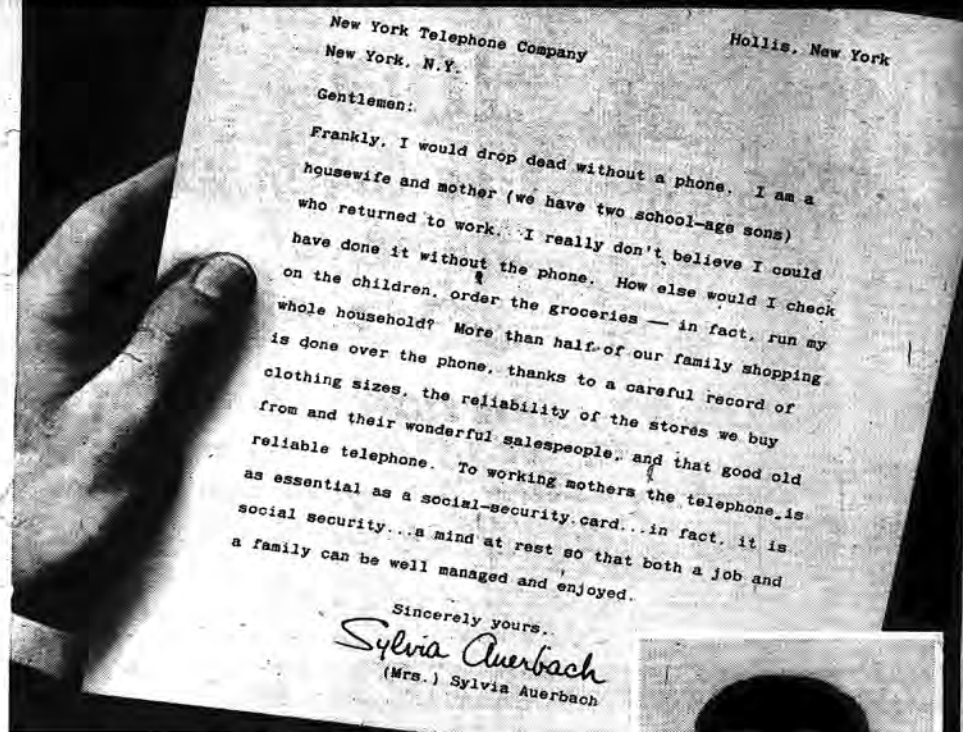 New York Telephone Company Hollis, New York
New York, N.Y.
Gentlemen:
Frankly, I would drop dead without a phone. I am a
housewife and mother (we have two school-age sons)
who returned to work...I really don't believe I could
have done it without the phone. How else would I check
on the children, order the groceries — in fact, run my
whole household? More than half of our family shopping
is done over the phone, thanks to a careful record of
clothing sizes, the reliability of the stores we buy
from and their wonderful salespeople, and that good old
reliable telephone. To working mothers the telephone is
as essential as a social-security card...in fact, it is
social security...a mind at rest so that both a job and
a family can be well managed and enjoyed.
Sincerely yours,
Sylvia Auerbach
(Mrs.) Sylvia Auerbach